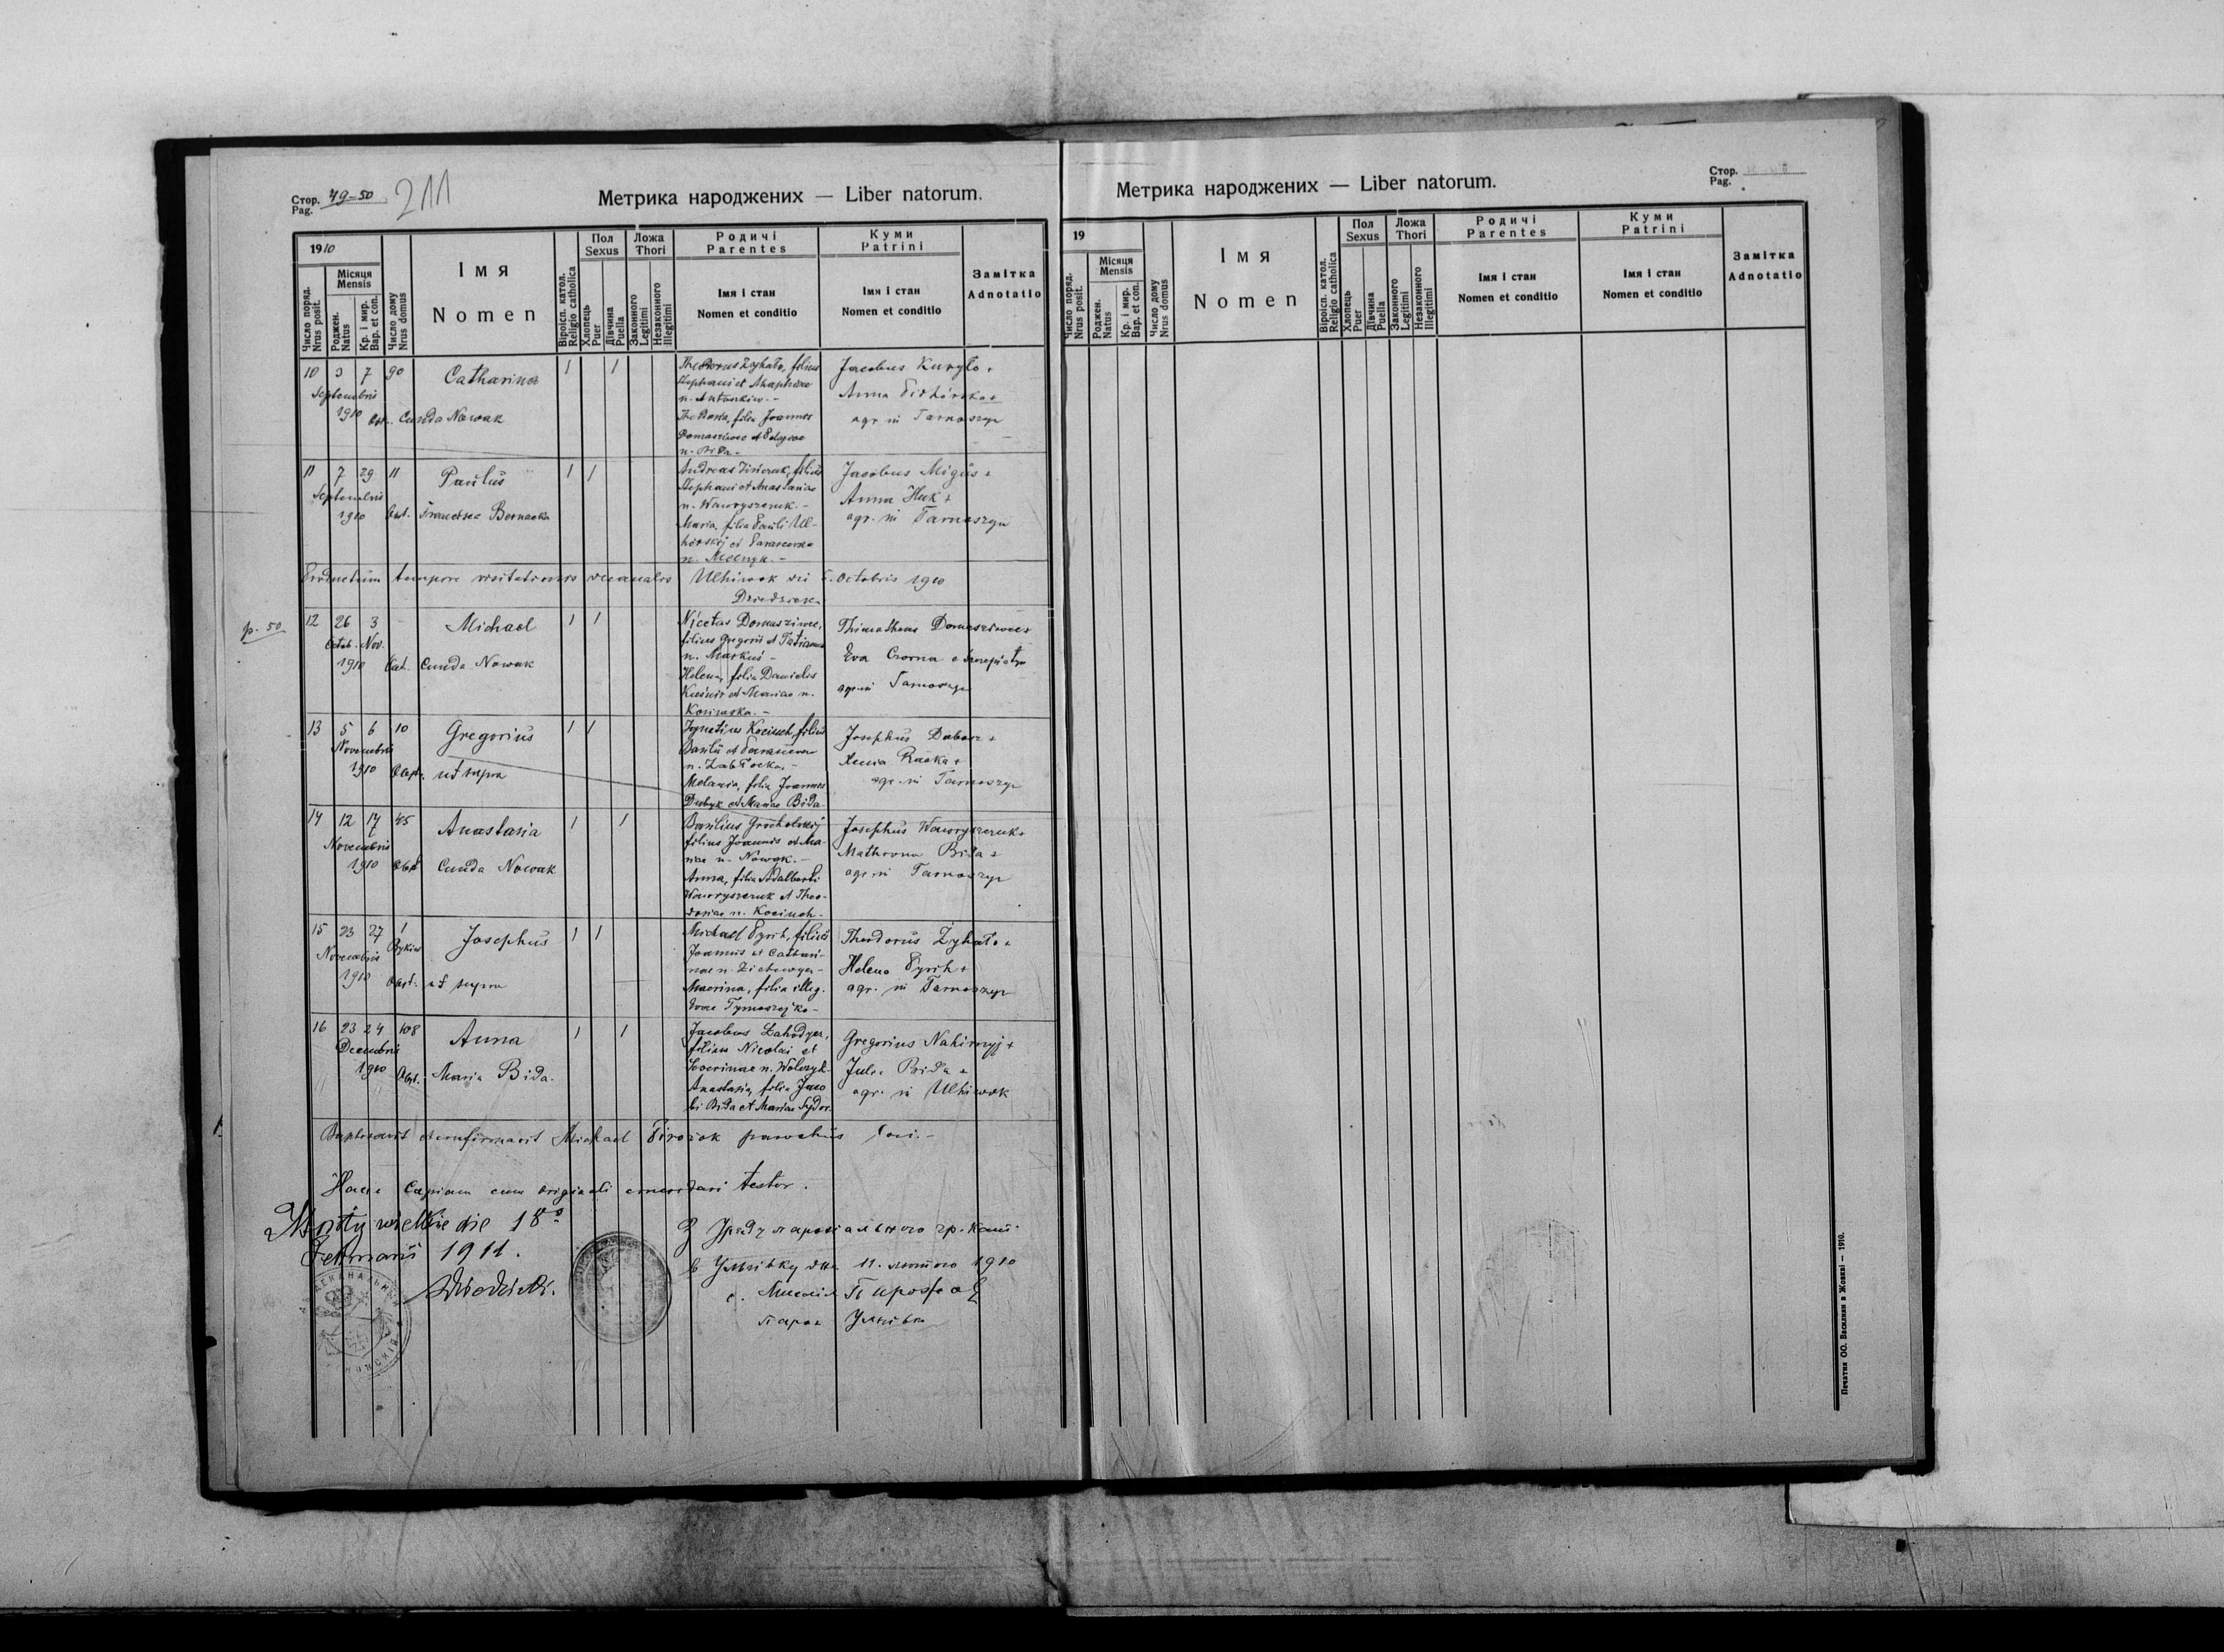 Стор. Pag. 49-50 211
Метрика народжених — Liber natorum.
1910
Число поряд. Nrus posit.
Місяця Mensis
Роджен. Natus
Кр. і мир. Bap. et con.
Число дому Nrus domus
Імя
Nomen
Віроісп. катол. Religio catholica
Пол Sexus
Хлопець Puer
Дівчина Puella
Ложа Thori
Законного Legitimi
Незаконного Illegitimi
Родичі Parentes
Імя і стан
Nomen et conditio
Куми Patrini
Імя і стан
Nomen et conditio
Замітка
Adnotatio
10 3 7 90 Catharina 1 1
Septembris
1910 Obst. Cunda Nowak
Theodorus Zyhało, filius
Stephani et Agaphiae
n. Antonkiw. -
Theodosia, filia Joannes
Domasziwec et Pelagiae
n. Bida -
Jacobus Kuryło +
Anna
agr. in Tarnoszyn
11 7 29 11 Paulus 1 1
Septembris
1910 Obst. Francisca Bernacka
Andreas filius
Stephani et Anastasiae
n. Wawryszczuk. -
Maria, filia Pauli Ul-
et Parascevae
n. Melnyk. -
Jacobus Migus +
Anna Huk +
agr. in Tarnoszyn
Productum tempore visitationis decanalis Ulhiwok die 5. Octobris 1910
p. 50
12 26 3 - Michael 1 1
Octob. Nov.
1910 Obst. Cunda Nowak
Nicetas Domasziwec,
filius Gregorii et Tatianna
n. Markus -
Helena, filia Danielis
Kuśnir et Mariae n.
Thimotheus Domasziwec +
Eva Czorna
agr. in Tarnoszyn
13 5 6 10 Gregorius 1 1
Novembris
1910 Obst. ut supra
Ignatius Kociuch, filius
Basilii et Parascevae
n. Zabłocka, -
Melania, filia Joannes
Dubyk et Mariae Bida
Josephus Dabor +
Xenia Racka +
agr. in Tarnoszyn
14 12 17 45 Anastasia 1 1
Novembris
1910 Obst. Cunda Nowak
Basilius Grocholskij
filius Joannis et Ma-
riae n. Nowak. -
Anna, filia Adalberti
Wawryszczuk et Theo-
dosiae n. Kociuch.
Josephus Wawryszczuk +
Mathrona Bida +
agr. in Tarnoszyn
15 23 27 1 Josephus 1 1
Novembris
1910 Obst. ut supra
Michael Pyrih, filius
Joannis et Cathari-
nae n.
Macrina, filia illeg.
Evae Tymoszejko -
Theodorus Zyhało +
Helena Pyrih +
agr. in Tarnoszyn
16 23 24 108 Anna 1 1
Decembris
1910 Obst. Maria Bida.
Jacobus Łahodyn,
filius Nicolai et
Anastasia, filia Jaco
bi Bida et Mariae Sydor
Gregorius Nahirnyj +
Julia Bida +
agr. in Ulhiwok
Baptisavit et confirmavit Michael Pirożok parochus loci. -
Hanc Copiam cum originali concordari testor.
Mosty wielkie die 18º
Februarii 1911.
З Уряду парохіального гр. кат.
в Угнівку дня 11. лютого 1910
о. Михаіл Пирожок
парох
Метрика народжених — Liber natorum.
Стор. Pag.
19
Число поряд. Nrus posit.
Місяця Mensis
Роджен. Natus
Кр. і мир. Bap. et con.
Число дому Nrus domus
Імя
Nomen
Віроісп. катол. Religio catholica
Пол Sexus
Хлопець Puer
Дівчина Puella
Ложа Thori
Законного Legitimi
Незаконного Illegitimi
Родичі Parentes
Імя і стан
Nomen et conditio
Куми Patrini
Імя і стан
Nomen et conditio
Замітка
Adnotatio
Печатня ОО. Василіян в Жовкві — 1910.